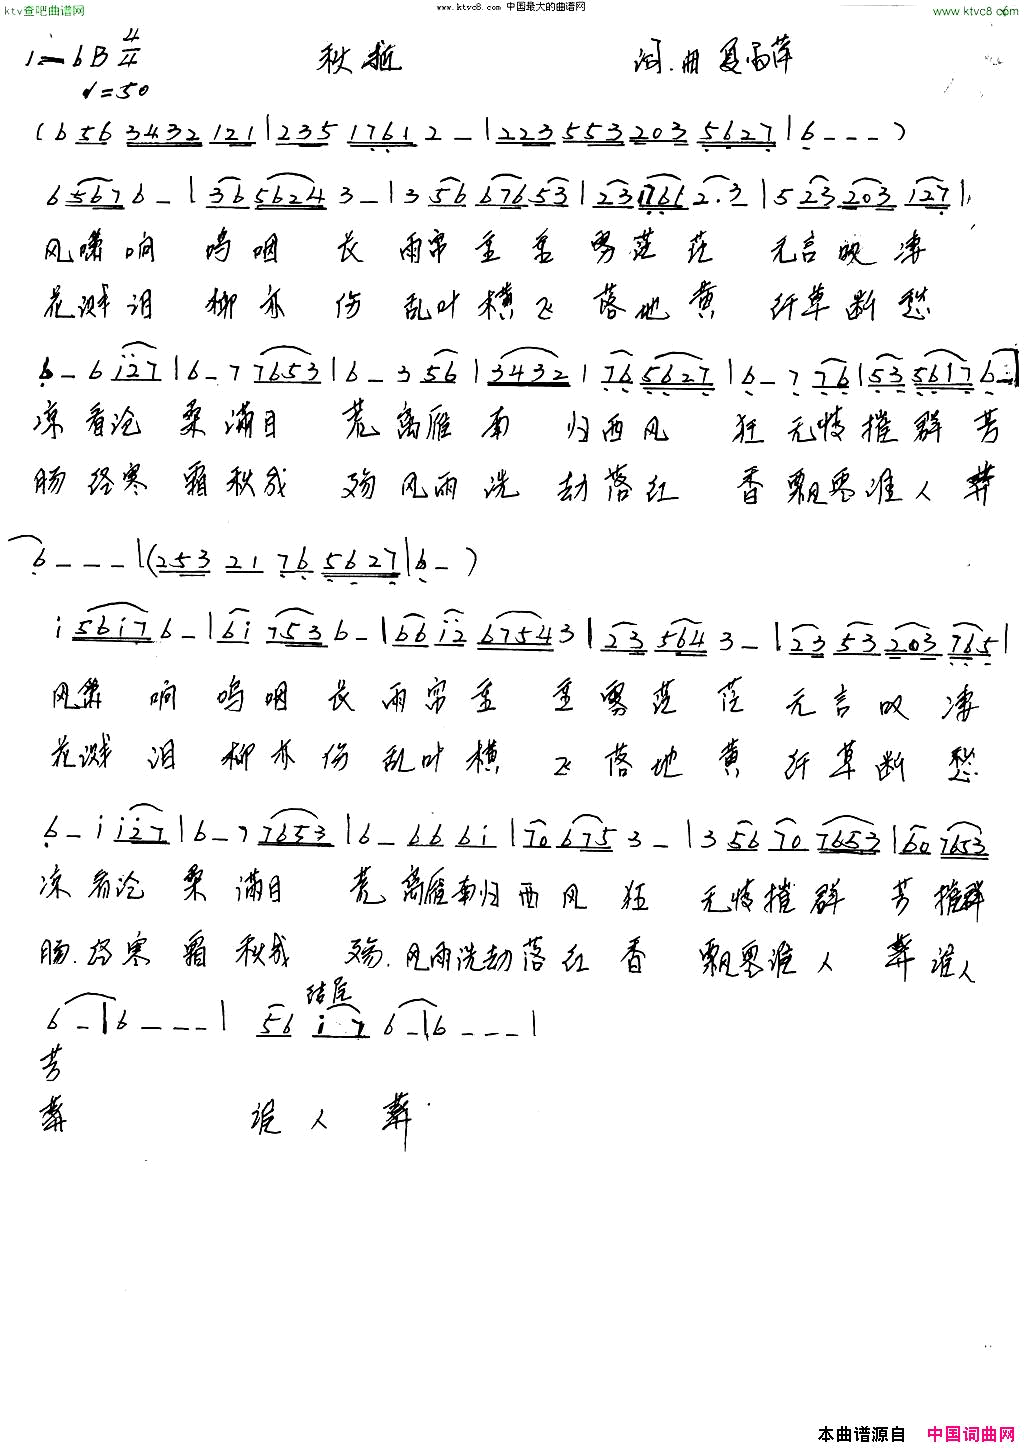 ktv查吧曲谱网 www.ktvc8.com 中国最大的曲谱网 www.ktvc8.com
1=bB 4/4 秋 词.曲 夏
♩=50
(6 56 3432 121|235 1761 2 -|223 553 203 5627|6 - - -)
6 567 6 -|36 5624 3 -|3 56 676 53|23 1761 2.3|5 23 203 127|
风啸响 呜咽 长 雨帘重重 雾茫茫 无言叹凄
花溅泪 柳亦 伤 乱叶横飞 落地黄 纤草断愁
6 - 6 i27|6 - 7 7653|6 - 3 56|3432 1 76 5627|6 - 7 76|53 5617 6 -|
凉 看沧 桑满目 荒 离雁 南 归西风 狂 无情摧群芳
肠 经寒 霜秋成 殇 风雨 洗 劫落红 香 飘零谁人葬
6 - - -|(253 21 76 5627|6 - )
i 56i7 6 -|6i 753 6 -|66 i2 6754 3|23 564 3 -|23 53 203 765|
风啸 响 呜咽长 雨帘重 重雾茫茫 无言叹凄
花溅 泪 柳亦伤 乱叶横 飞落地黄 纤草断愁
6 - i i27|6 - 7 7653|6 - 66 6i|70 675 3 -|3 56 70 7653|60 7653
凉 看沧 桑 满目 荒 离雁南归西风 狂 无情摧群 芳 摧群
肠. 经寒 霜 秋成 殇. 风雨洗劫落红 香 飘零谁人 葬 谁人
结尾
6 -|6 - - -| 56 i7 6 -|6 - - -|
芳
葬 谁 人 葬
本曲谱源自 中国词曲网